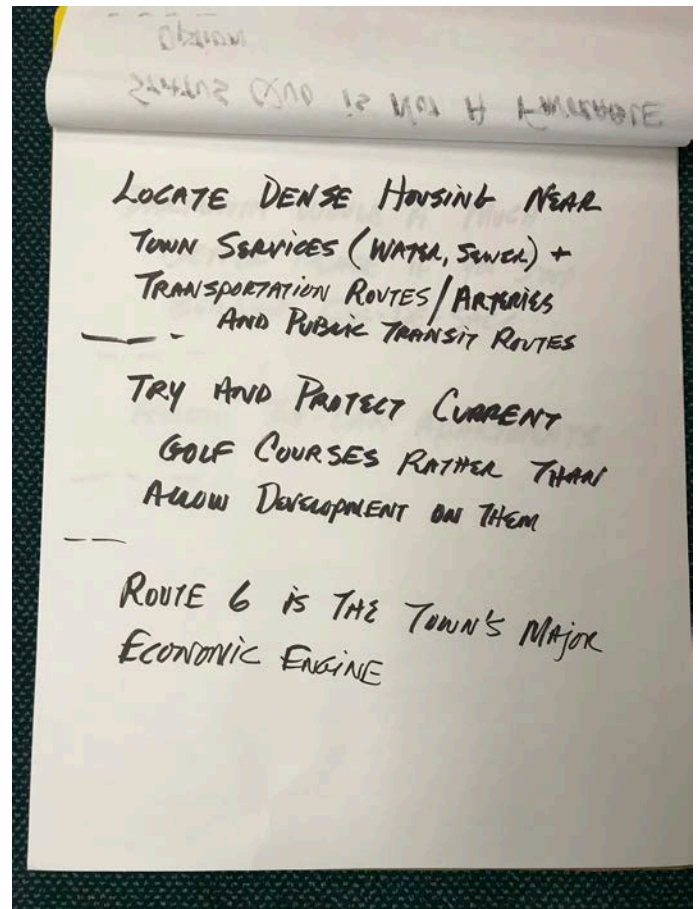 Status Quo is Not A Favorable
Option
LOCATE DENSE HOUSING NEAR
TOWN SERVICES (WATER, SEWER) +
TRANSPORTATION ROUTES/ARTERIES
AND PUBLIC TRANSIT ROUTES
TRY AND PROTECT CURRENT
GOLF COURSES RATHER THAN
ALLOW DEVELOPMENT ON THEM
ROUTE 6 iS THE TOWN'S MAjOR
ECONOMiC ENGiNE